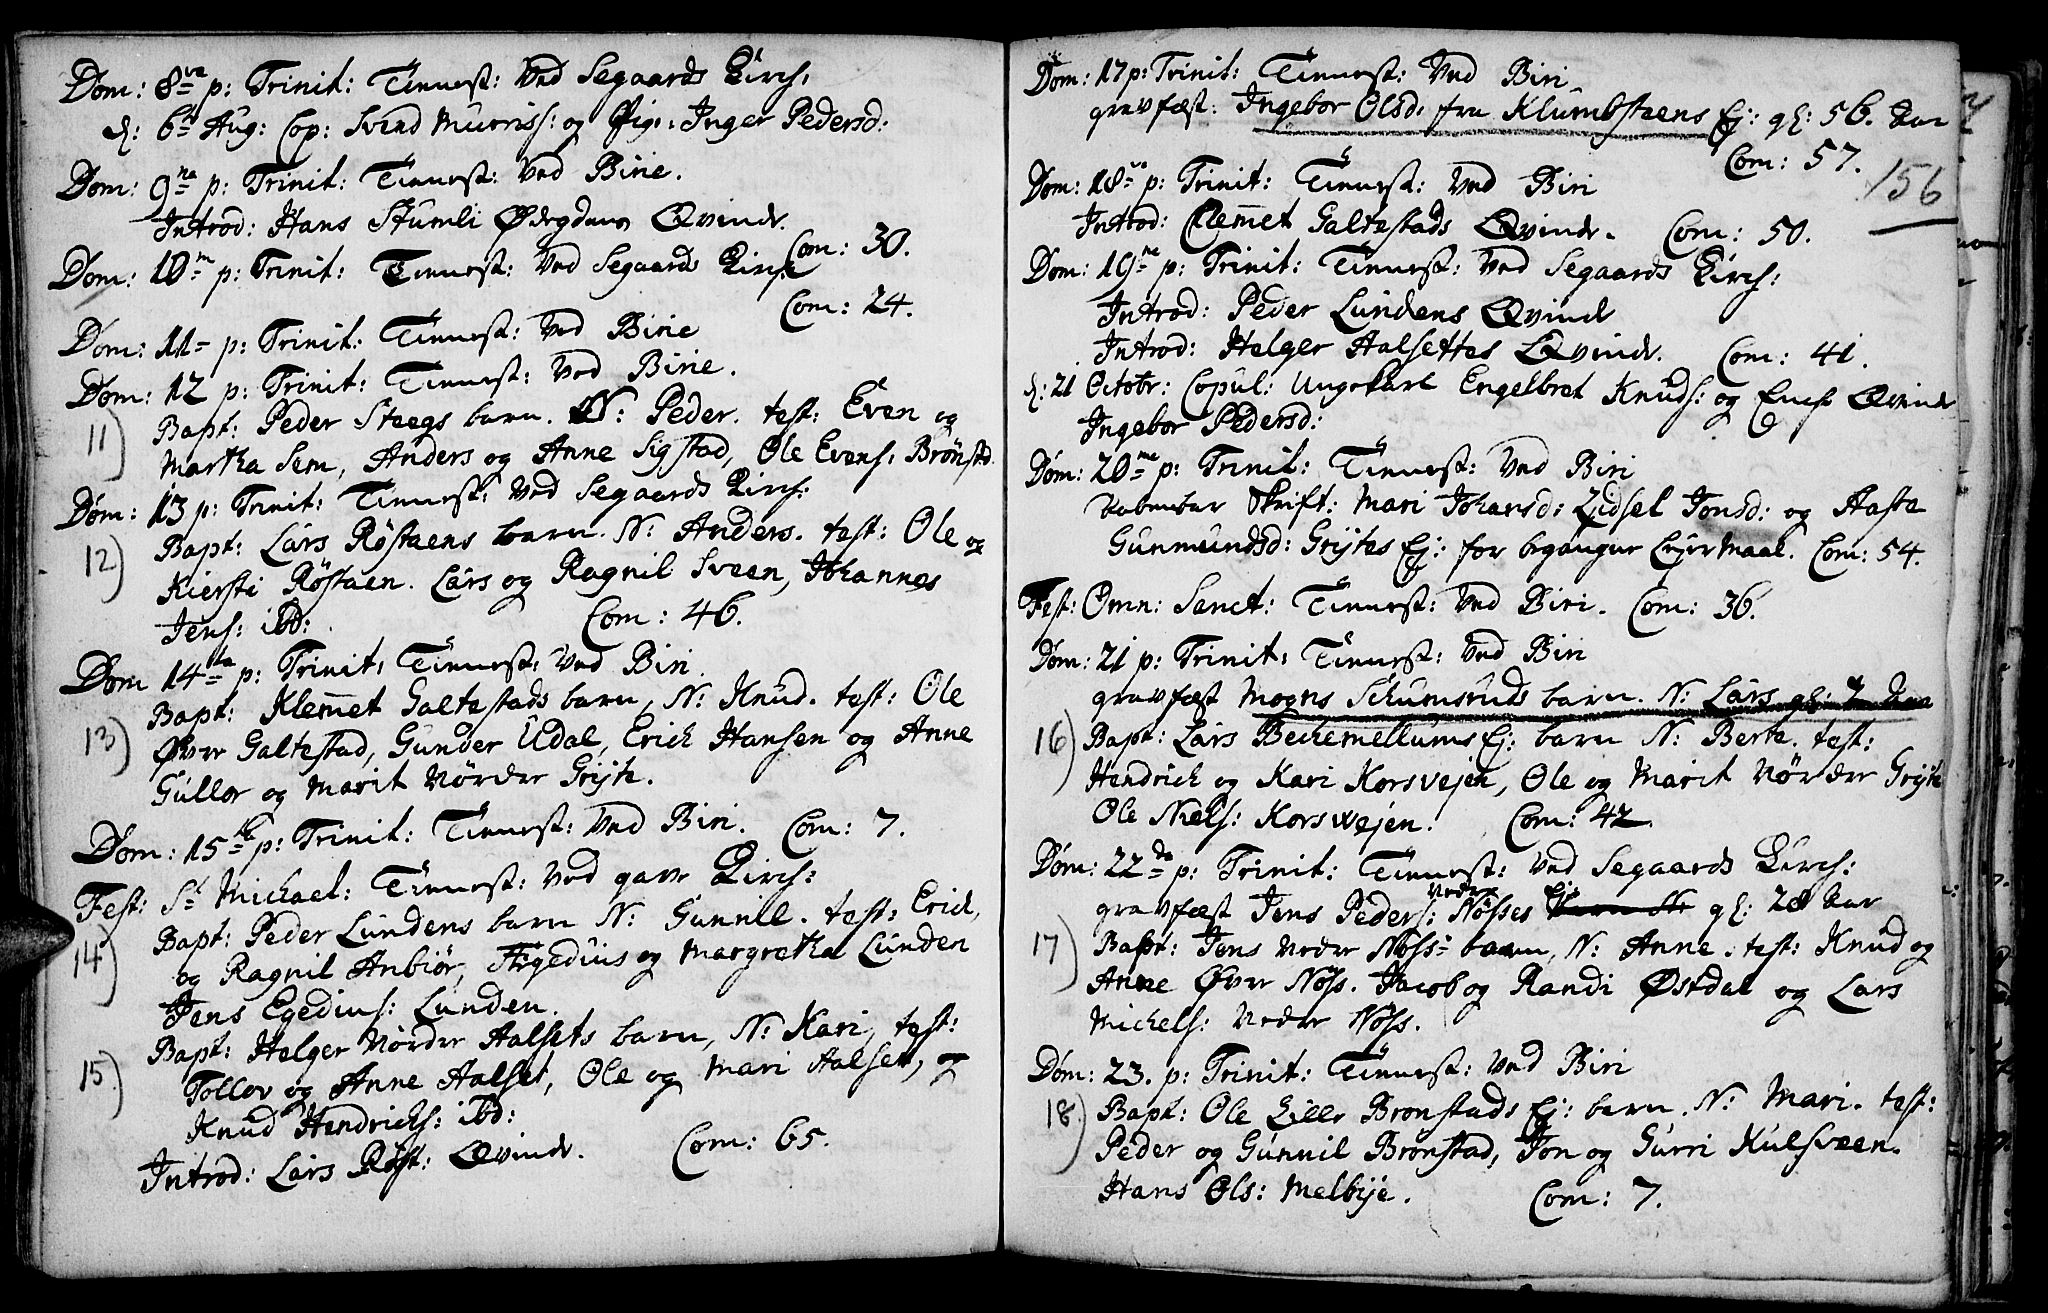 Dom: 8va p: Trinit: Tienest: Ved Segaards Kirch:
d: 6t Aug: Cop: Svend Murriss: og Pig: Inger Pedersd:
Dom: 9na p: Trinit: Tienest: Ved Birie.
Introd: Hans Skumli Ødegdens Qvinde.
Com: 30.
Dom: 10m p: Trinit: Tienest: Ved Segaards Kirch
Com: 24.
Dom: 11 p: Trinit: Tienest: Ved Birie
Dom: 12 p: Trinit: Tienest: Ved Birie.
11) Bapt: Peder Steegs barn. N: Peder. test: Even og
Martha Sem, Anders og Anne Sigstad, Ole Evens: Brønstd.
Dom: 13 p: Trinit: Tienest: Ved Segaards Kirch:
12) Bapt: Lars Røstaens barn. N: Anders. test: Ole og
Kiersti Røstaen. Lars og Ragnil Sveen, Johannes
Jens: ibd: Com: 46.
Dom 14ta p: Trinit: Tienest: Ved Biri
13) Bapt: Klemmet Galtestads barn, N: Knud. test: Ole
Øvre Galtestad, Gunder Udal, Erich Hansen og Anne
Gullor og Marit Nördre Grijte.
Dom: 15ta p: Trinit: Tienest: Ved Biri. Com: 7.
Fest: St Michael: Tienest: Ved gave Kirch:
14) Bapt: Peder Lundens barn N: Gunnil. test: Erich,
og Ragnil Anbiør, Ægedius og Margretha Lunden
Jens Egedius: Lunden.
15) Bapt: Helger Nördre Aalsets barn, N: Kari, test:
Tollov og Anne Aalset, Ole og Mari Aalset, og
Knud Hendrichs: ibd:
Introd: Lars Røst: Qvinde. Com: 65.
Dom: 17 p: Trinit: Tienest: Ved Biri
gravfæst: Ingebor Olsd: fra Klumbsteens Ej: gl: 56. Aar
Com: 57.
156
Dom: 18va p: Trinit: Tienest: Ved Biri
Introd: Clemmet Galtestads Qvinde. Com: 50.
Dom: 19ne p: Trinit: Tienest: Ved Segaards Kirch:
Introd: Peder Lundens Qvinde
Introd: Helger Aalsettes Qvinde. Com: 41.
d: 21 Octobr: Copul: Ungekarl Engelbret Knuds: og Qvinde
Ingebor Pedersd:
Dom: 20me p: Trinit: Tienest: Ved Biri
Aabenbar Skrift: Mari Johansd: Zidsel Jonsd: og Aaste
Gunmundsd: Grijtes Ej: for begangne Lejermaal. Com: 54.
Fest: Omn: Sanct: Tienest: Ved Biri. Com: 36.
Dom: 21 p: Trinit: Tienest: Ved Biri
gravfæst Mogns Schumsruds barn. N: Lars gl:
16) Bapt: Lars Bechemellums Ej: barn N: Berte. test:
Hendrich og Kari Korsvejen, Ole og Marit Nördre Grijte
Ole Niels: Korswejen. Com: 42.
Dom: 22da p: Trinit: Tienest: Ved Segaards Kirch:
gravfæst Jens Peders: Nedre Nøsses Ej: barn N: gl: 28 Aar
17) Bapt: Jens Nedre Nøss: barn, N: Anne. test: Knud og
Anne Øvre Nøss. Jacob og Randi Østdal og Lars
Michels: Nedre Nøss.
Dom: 23. p: Trinit: Tienest: Ved Biri
18.) Bapt: Ole Lille Bronstads Ej: barn. N: Mari. test:
Peder og Gunnil Bronstad, Jon og Gurri Kulsveen.
Hans Ols: Melbye. Com: 7.